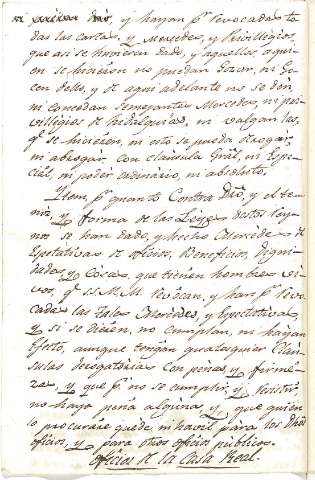 y hayan pr. revocadas to
das las cartas, y Mercedes, y Privillegios,
que asi se huvieren dado, y aquellos, a quien
on se hicieron no puedan Gozar, ni Go
cen dello, y de aqui adelante no se den,
ni concedan semejantes Mercedes, ni pri
villegios de Hidalguias, ni valgan los,
qe. se hicieren, ni esto se pueda derogar,
ni abrogar, con clausula Gral, ni Espe
cial, ni poder ordinario, ni absoluto.
Ytem pr. quanto Contra Dro, y el te
nor, y forma de las Leyes destos Rey
nos se han dado, y hecho Mercedes de
Espectativas de oficios, Beneficios, Digni
dades, y Cosas, que tienen hombres vi
vos, qe. SS. M. M. revocan, y han pr. revo
cadas las tales Mercedes, y Espectativas,
y si se dieren, no cumplan, ni hayan
Efecto, aunque tengan qualesquier Clau
sulas derogatorias con penas, y firme
zas, y que pr. no se cumplir, y Resistir
no haya pena alguna, y que quien
lo procurare quede inhavil para los Dhos
oficios, y para otros oficios publicos.
Oficios de la Casa Real.